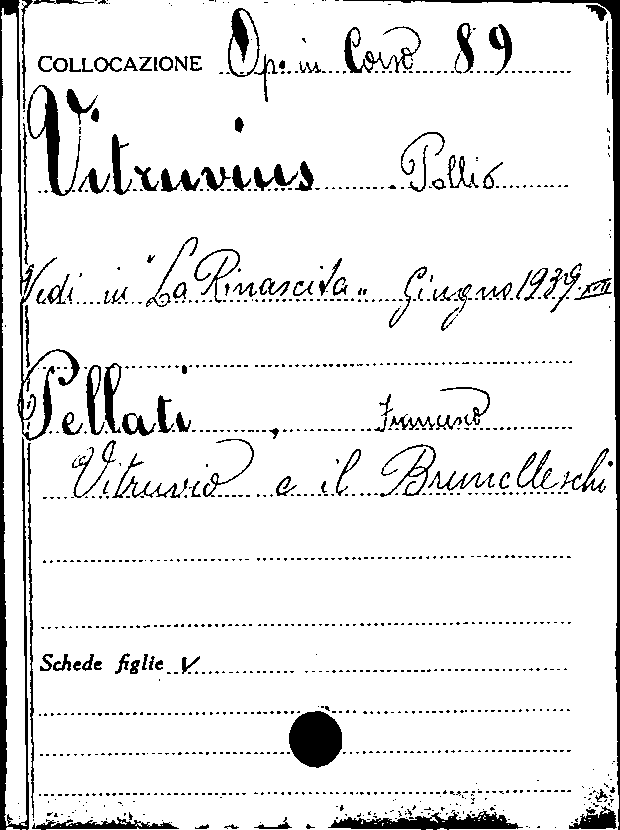 COLLOCAZIONE Op. in Corso 89
Vitruvius Pollio
Vedi in "La Rinascita" Giugno 1939 XVII
Pellati, Francesco
Vitruvio e il Brunelleschi
Schede figlie V